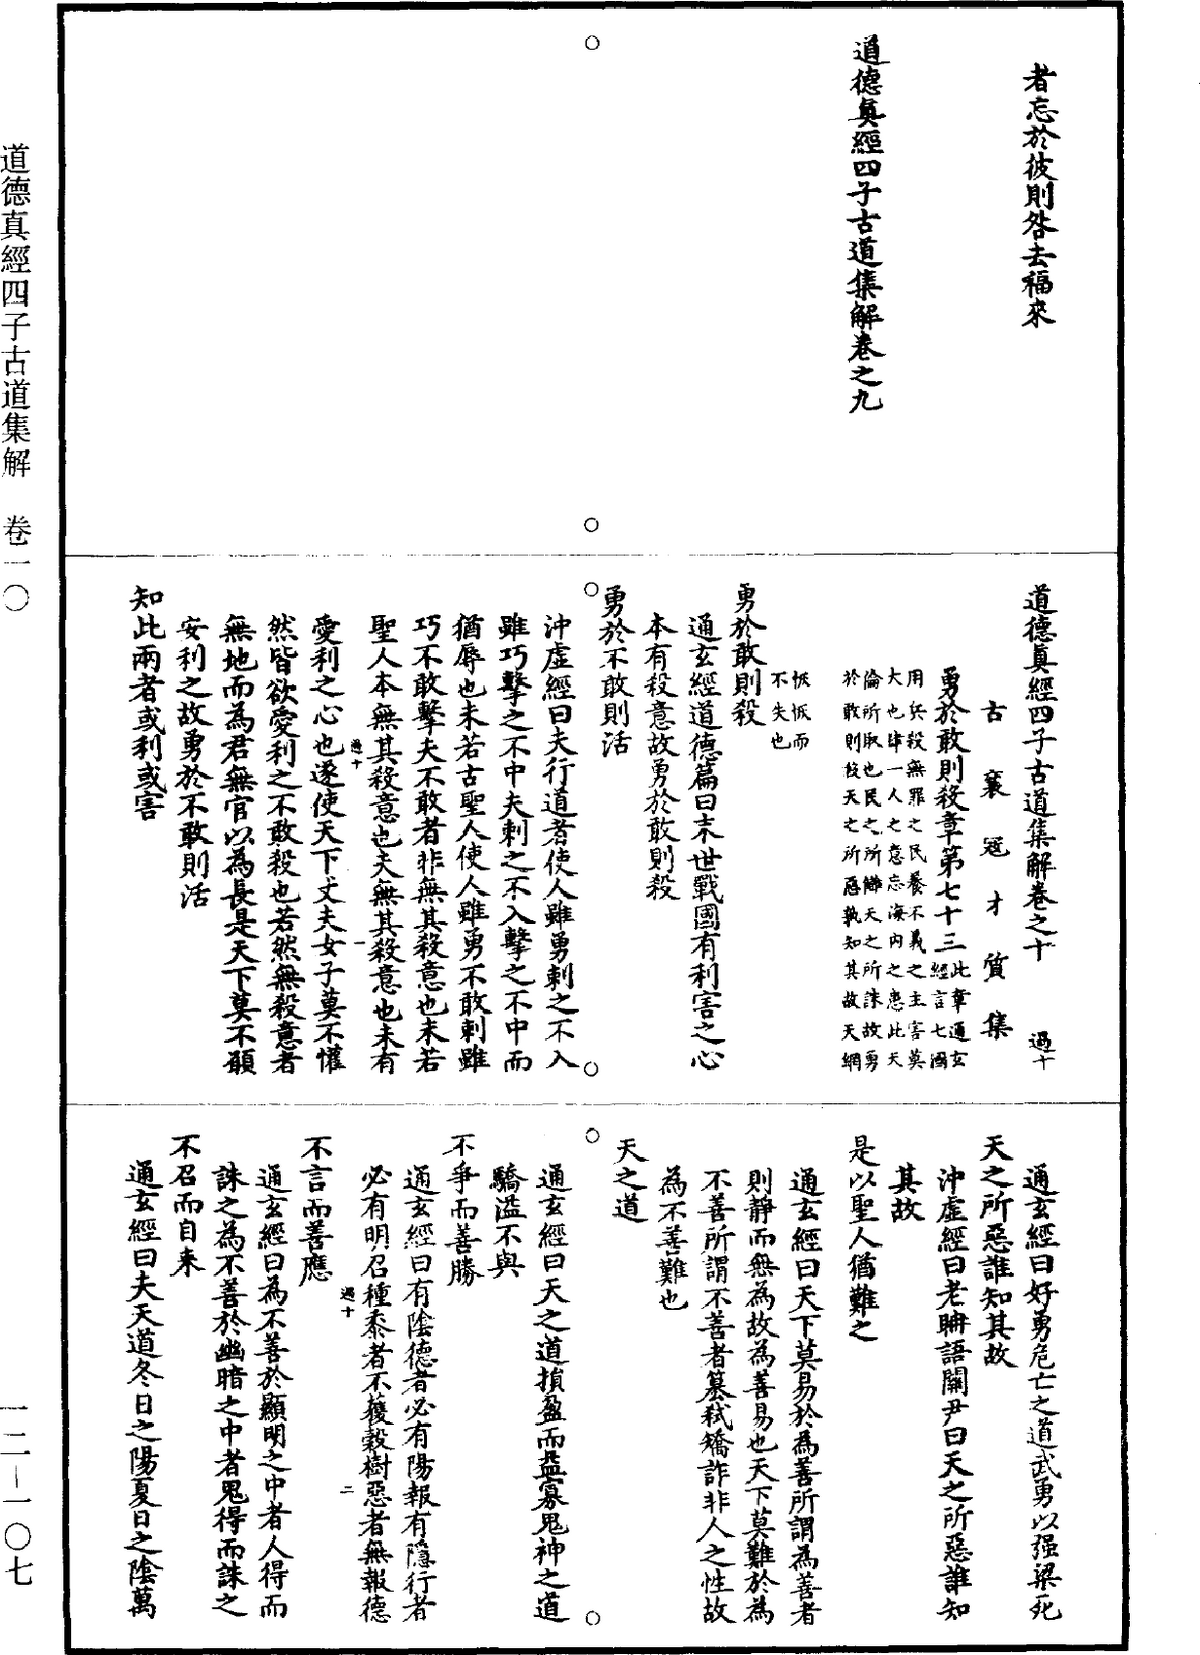 者忘於彼則咎去福來
道德真經四子古道集解卷之九
道德真經四子古道集解卷之十 過十
古襄寇才質集
勇於敢則殺章第七十三此章通玄
經言七國
用兵殺無罪之民養不義之主害莫
大也肆一人之意忘海内之患此天
倫所取也民之所讎天之所誅故勇
於敢則殺天之所惡孰知其故天網
恢恢而
不失也
勇於敢則殺
通玄經道德篇曰末世戰國有利害之心
本有殺意故勇於敢則殺
勇於不敢則活
沖虛經曰夫行道者使人雖勇刺之不入
雖巧擊之不中夫刺之不入擊之不中而
猶辱也未若古聖人使人雖勇不敢刺雖
巧不敢擊夫不敢者非無其殺意也未若
聖人本無其殺意也夫無其殺意也未有
過十 一
愛利之心也遂使天下丈夫女子莫不懽
然皆欲愛利之不敢殺也若然無殺意者
無地而為君無官以為長是天下莫不願
安利之故勇於不敢則活
知此兩者或利或害
通玄經曰好勇危亡之道武勇以强梁死
天之所惡誰知其故
沖虛經曰老聃語關尹曰天之所惡誰知
其故
是以聖人猶難之
通玄經曰天下莫易於為善所謂為善者
則靜而無為故為善易也天下莫難於為
不善所謂不善者篡弒矯詐非人之性故
為不善難也
天之道
通玄經曰天之道損盈而益寡鬼神之道
驕溢不與
不爭而善勝
通玄經曰有陰德者必有陽報有隱行者
必有明召種黍者不穫穀樹惡者無報德
過十 二
不言而善應
通玄經曰為不善於顯明之中者人得而
誅之為不善於幽暗之中者鬼得而誅之
不召而自来
通玄經曰夫天道冬日之陽夏日之陰萬
道德真經四子古道集解 卷一〇
一二－一〇七